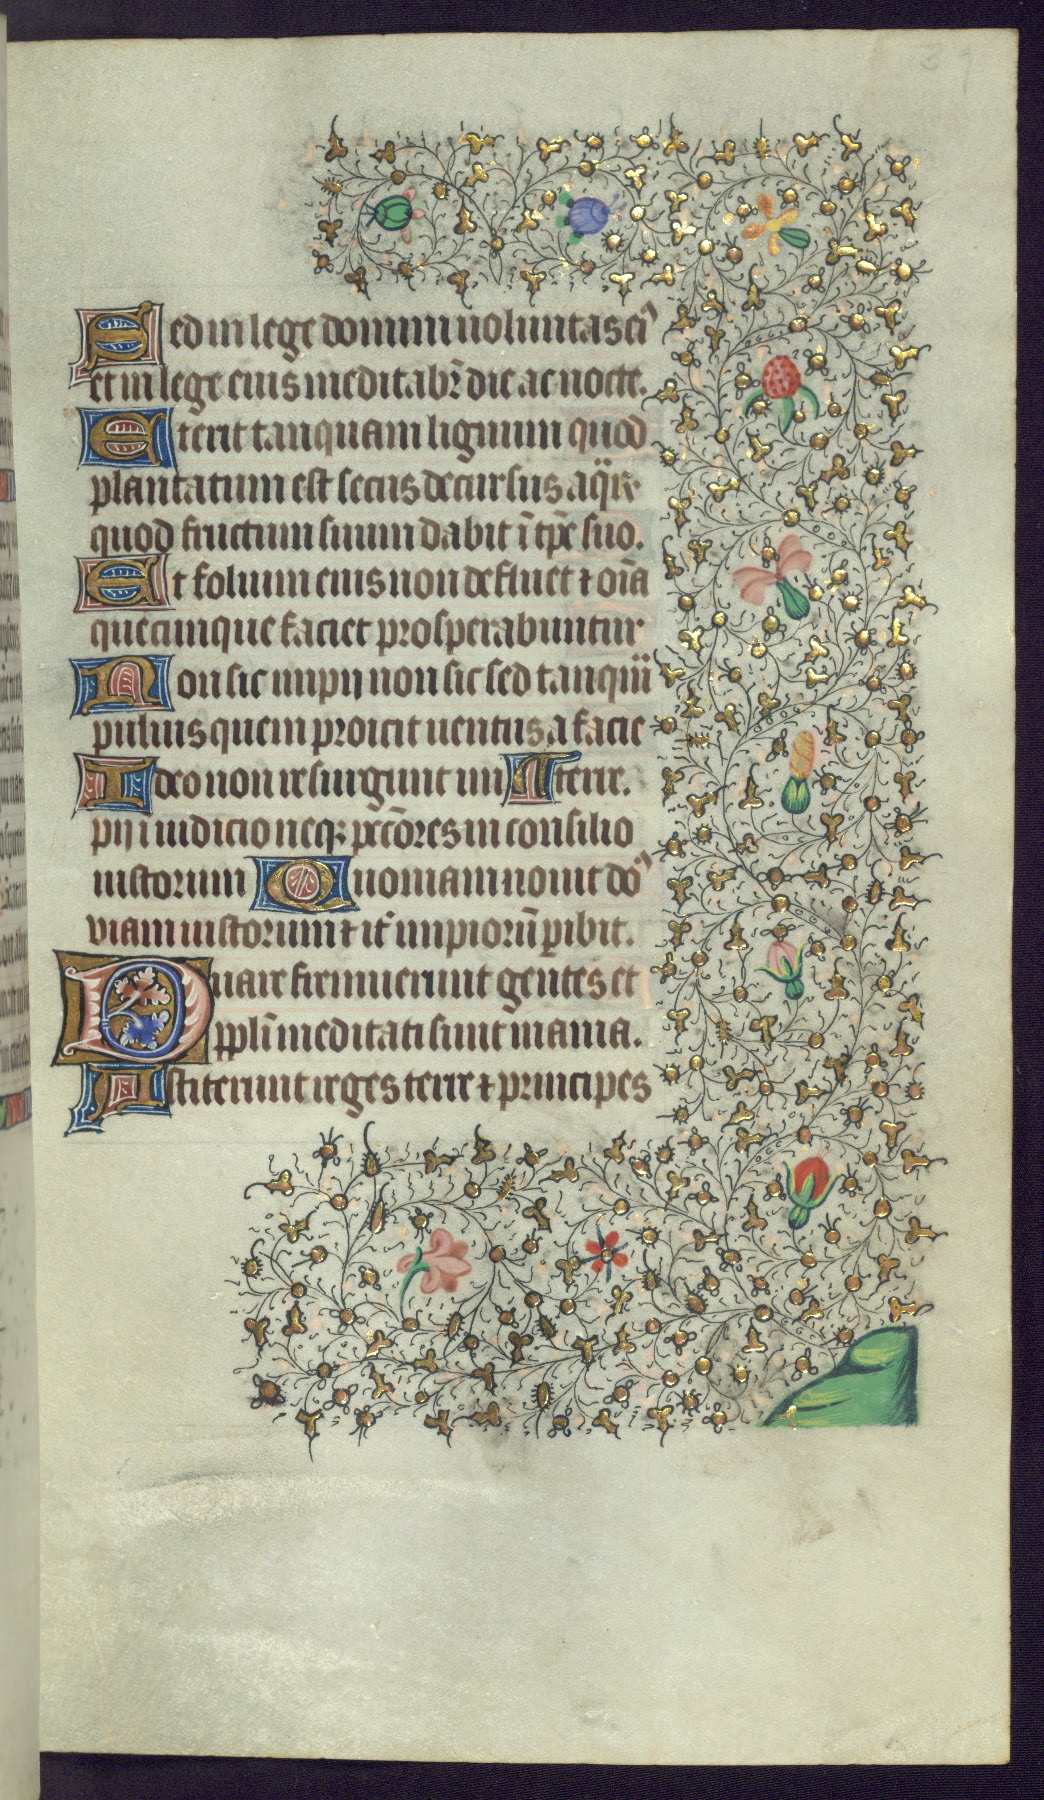 31
Sed in lege domini uoluntas ei'
et in lege eius meditabr̄ die ac nocte.
Et erit tanquam lignum quod
plantatum est secus decursus aq̈ꝝ
quod fructum suum dabit ī tp̄e suo.
Et folium eius non defluet ⁊ om̄a
quecunque faciet prosperabuntur
Non sic impij non sic sed tanquā
puluis quem proicit uentus a facie
Ideo non resurgunt im terre.
pij i iudicio neqꝫ pctōres in consilio
iustorum Quoniam nouit do'
viam iustorum ⁊ it̄ impiorū ꝑibit.
Quare firmuerunt gentes et
ppl̄i meditati sunt inania.
Astiterunt reges terre ⁊ principes